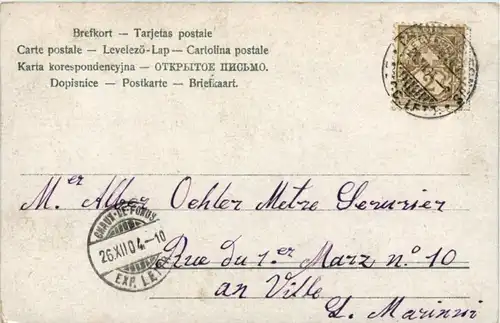 Brefkort — Tarjetas postale
Carte postale — Levelező-Lap — Cartolina postale
Karta korespondencyjna — ОТКРЫТОЕ ПИСЬМО.
Dopisnice — Postkarte — Briefkaart.
M.er Alber Oehler Metre Serurier
CHAUX-DE-FONDS
26.XII.04.-10
EXP. LET.
Rue du 1.er Marz n.o 10
an Ville